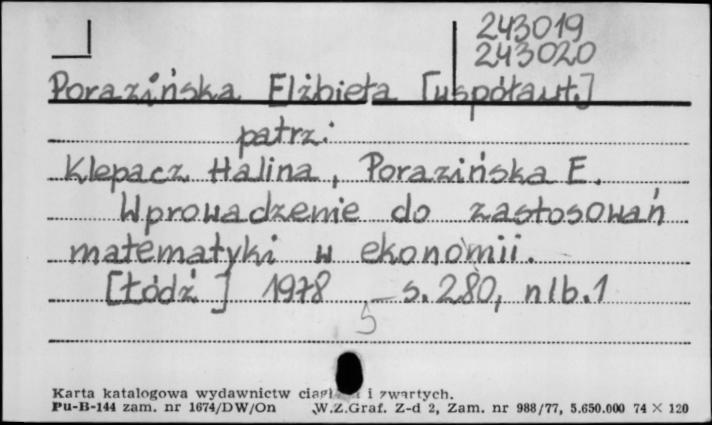 243019
243020
Porazińska Elżbieta [współaut.]
patrz:
Klepacz Halina, Porazińska E.
Wprowadzenie do zastosowań
matematyki w ekonomii.
[Łódź] 1978 s. 280, nlb. 1
5
Karta katalogowa wydawnictw i zwartych.
Pu-B-144 zam. nr 1674/DW/On W.Z.Graf. Z-d 2, Zam. nr 988/77, 5.650.000 74 × 120